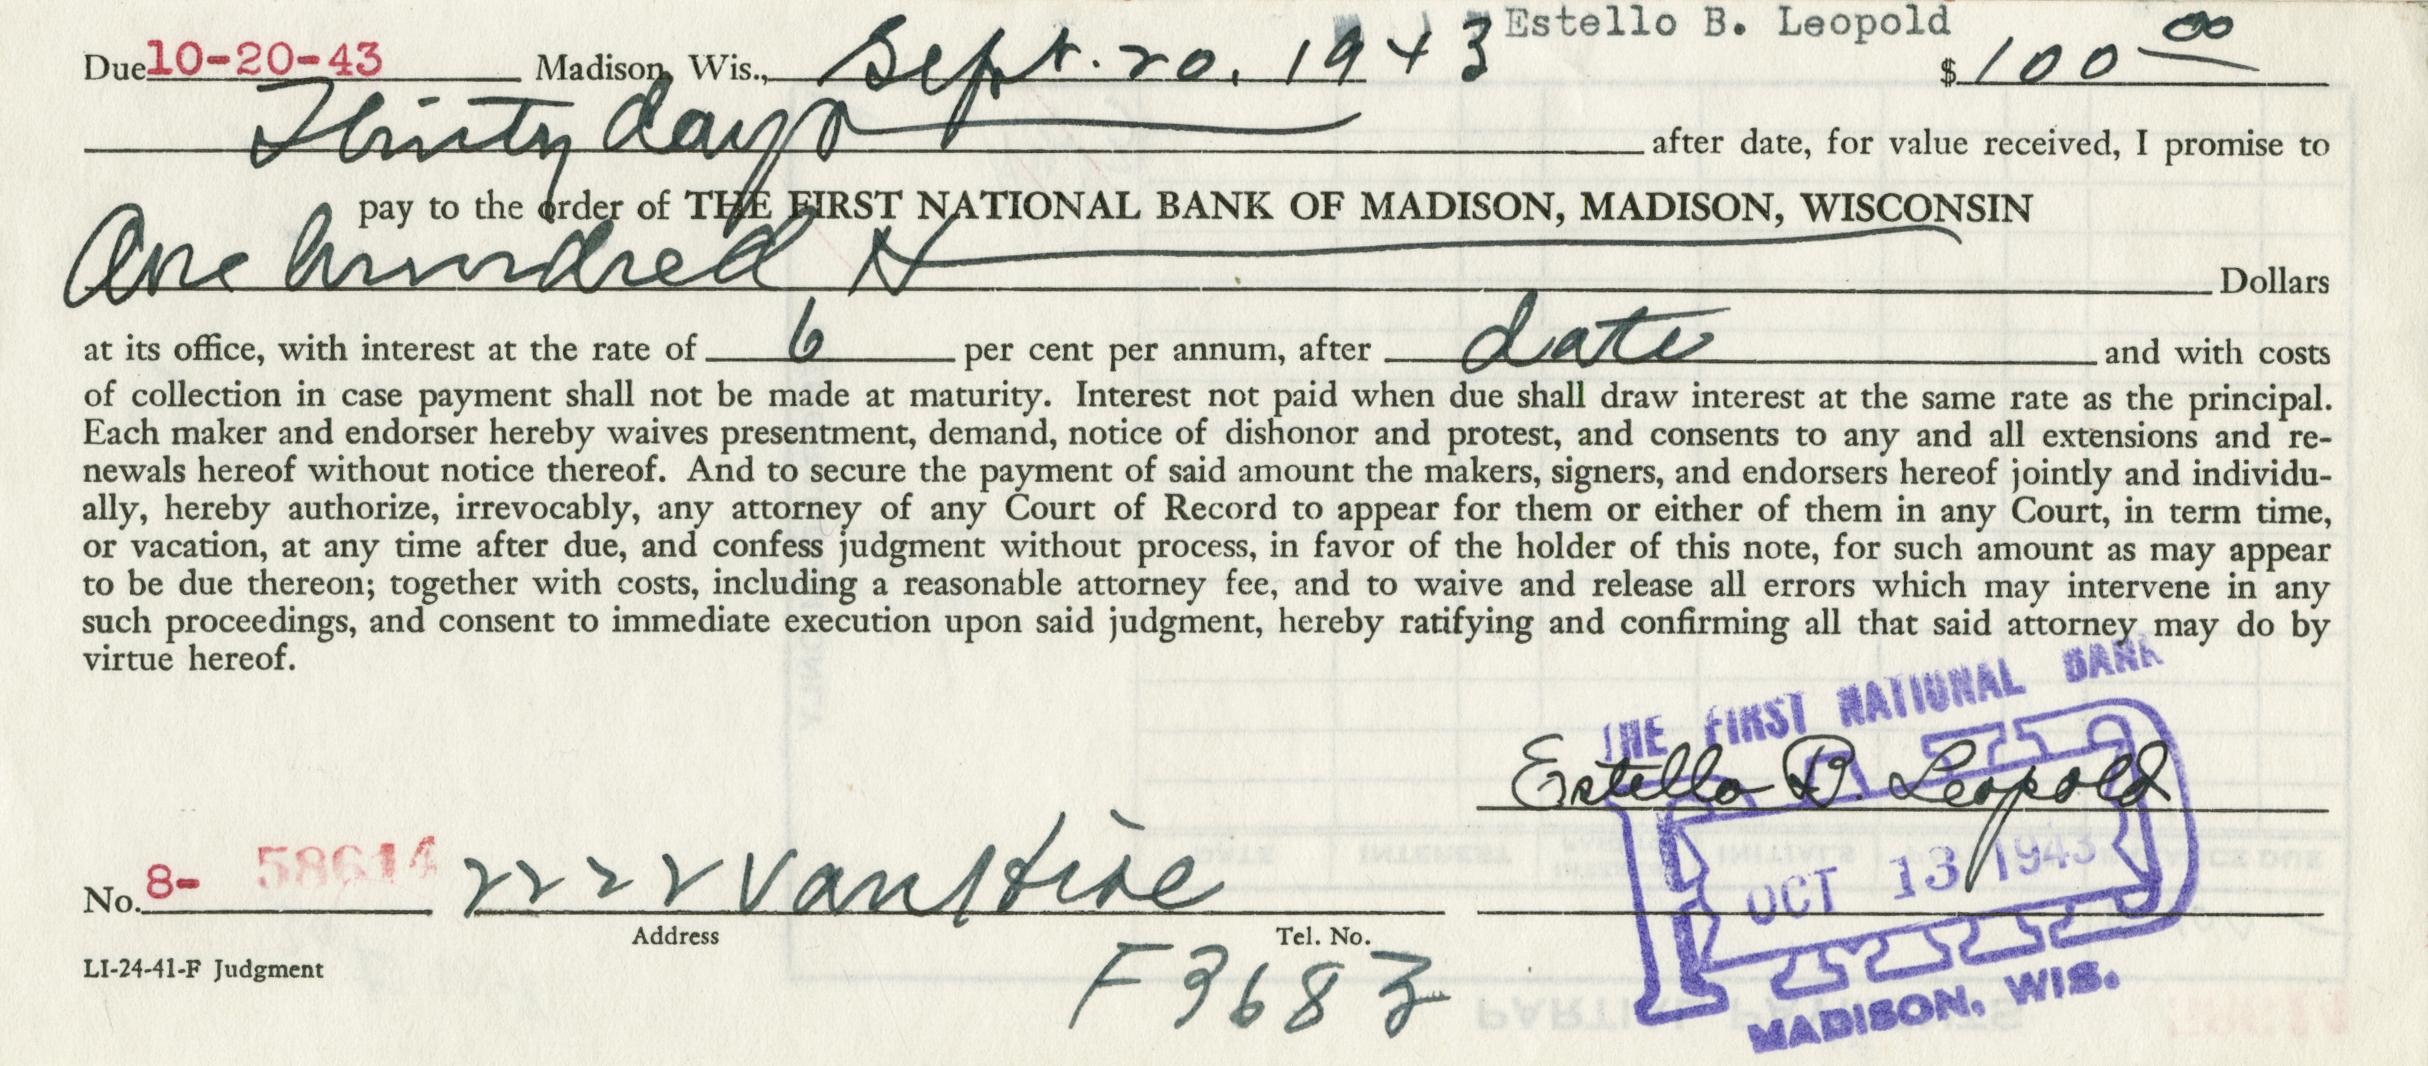 Estello B. Leopold
Due 10-20-43 Madison, Wis., Sept. 20, 1943 $ 100 00
Thirty days after date, for value received, I promise to
pay to the order of THE FIRST NATIONAL BANK OF MADISON, MADISON, WISCONSIN
One hundred Dollars
at its office, with interest at the rate of 6 per cent per annum, after date and with costs
of collection in case payment shall not be made at maturity. Interest not paid when due shall draw interest at the same rate as the principal.
Each maker and endorser hereby waives presentment, demand, notice of dishonor and protest, and consents to any and all extensions and re-
newals hereof without notice thereof. And to secure the payment of said amount the makers, signers, and endorsers hereof jointly and individu-
ally, hereby authorize, irrevocably, any attorney of any Court of Record to appear for them or either of them in any Court, in term time,
or vacation, at any time after due, and confess judgment without process, in favor of the holder of this note, for such amount as may appear
to be due thereon; together with costs, including a reasonable attorney fee, and to waive and release all errors which may intervene in any
such proceedings, and consent to immediate execution upon said judgment, hereby ratifying and confirming all that said attorney may do by
virtue hereof.
THE FIRST NATIONAL BANK
PAID
Estella B. Leopold
OCT 13 1943
MADISON, WIS.
No. 8- 58614 2222 Van Hise
Address Tel. No.
F3683
LI-24-41-F Judgment